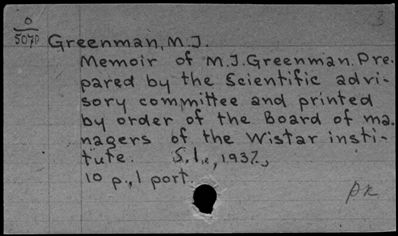 3
0
5070 Greenman, M.J.
Memoir of M.J. Greenman. Pre-
pared by the Scientific advi-
sory committee and printed
by order of the Board of ma-
nagers of the Wistar insti-
tute. S.l., 1937.,
10 p., 1 port.
pk